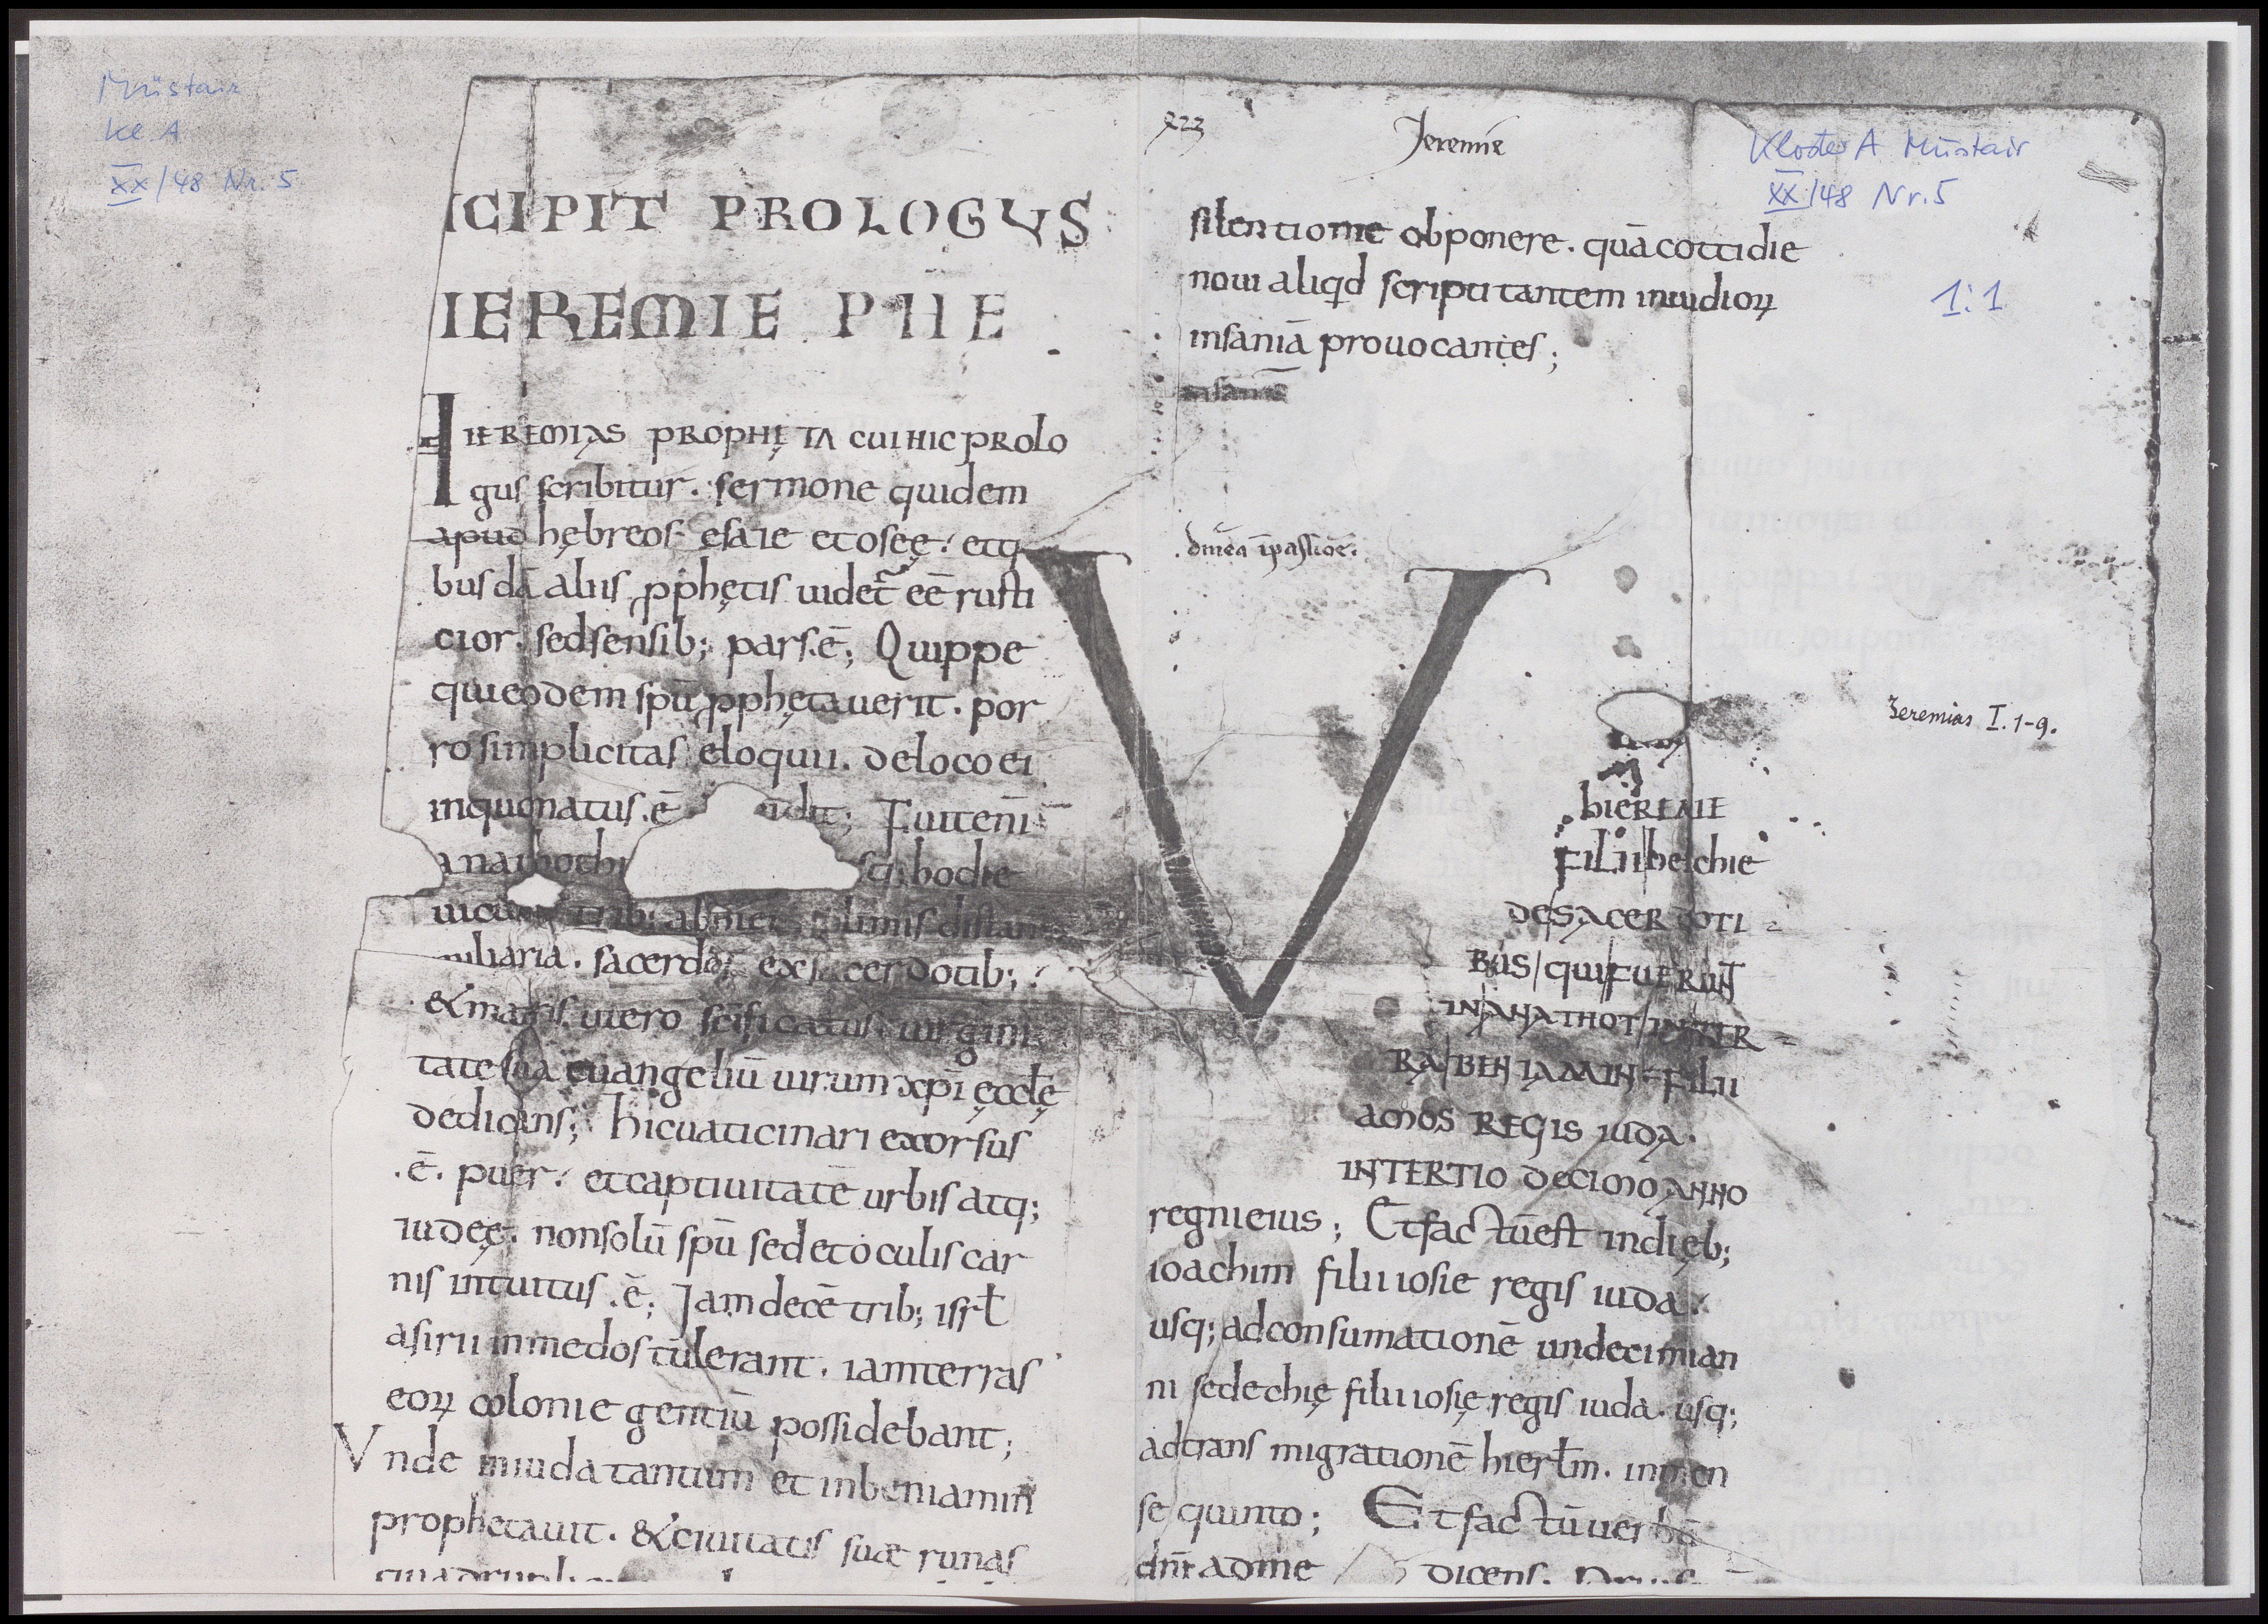 Müstair
Kl. A
XX/48 Nr. 5
ICIPIT PROLOGUS
IEREMIE PHE
IEREMIAS PROPHĘTA CUI HIC PROLO
gus scribitur. sermone quidem
apud hębreos esaie et oseę. et q
busdā aliis ꝓphętis uidet̄ eē rusti
cior. sed sensib; par s.ē; Quippe
qui eodem spū ꝓphętauerit. por
ro simplicitas eloquii. de loco ei
in quo natus.ē dit; Fuit eni
anathothi sq; hodie
uicus trib;
miliaria. sacerdos ex sacerdotib;
& matris uero scīficatus uirgini
tate sua euangeliū uirum xpi ęcclę
dedicans; hic uaticinari exorsus
.ē. puer. et captiuitatē urbis atq;
iudeę. non solū spū sed et oculis car
nis intuitus .ē; Jam decē trib; isrł
asirii in medos tulerant. iam terras
eoꝝ colonie gentiū possidebant;
Vnde in iuda tantum et in beniamin
prophetauit. & ciuitatis suæ ruinas
223
Jeremie
Kloster A Müstair
XX/48 Nr. 5
1:1
silentio me obponere. quā cottidie
noui aliqid scriptitantem inuidioꝝ
insaniā prouocantes;
insaniā
V
Jeremias I. 1-9.
hIEREMIE
FILII helchie
DE SACERDOTI
BUS QUI FUERUNT
IN ANATHOT IN TER
RA BENIAMIN FILII
AMOS REGIS IUDA.
IN TERTIO DECIMO ANNO
regni eius; Et factū est in dięb;
ioachim filii iosie regis iuda.
usq; ad consumationē undecimi an
ni sedechię filii iosię regis iuda. usq;
ad trans migrationē hierłm. in men
se quinto; Et factū uerbū
dnī ad me dicens.